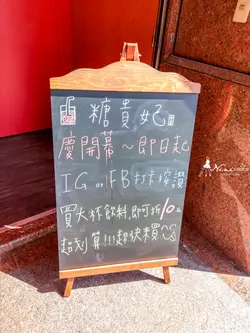 糖貴妃
慶開幕~即日起
IG or FB打卡按讚
買大杯飲料,即可折10元
超划算!!!趕快來買